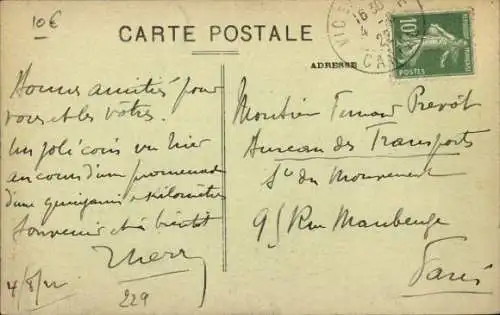 10€
CARTE POSTALE
ADRESSE
VIC
16 30
4
CA
10c
POSTES
Bonnes amitiés pour
vous et les vôtres.
Un joli coin vu hier
au cours d'une promenade
d'une quinzaine kilomètres
Souvenir et à bientôt
Thierry
4/8/22
229
Monsieur Fernand Prevôt
Bureau des Transports
Sce du Mouvement
95 Rue Maubeuge
Paris